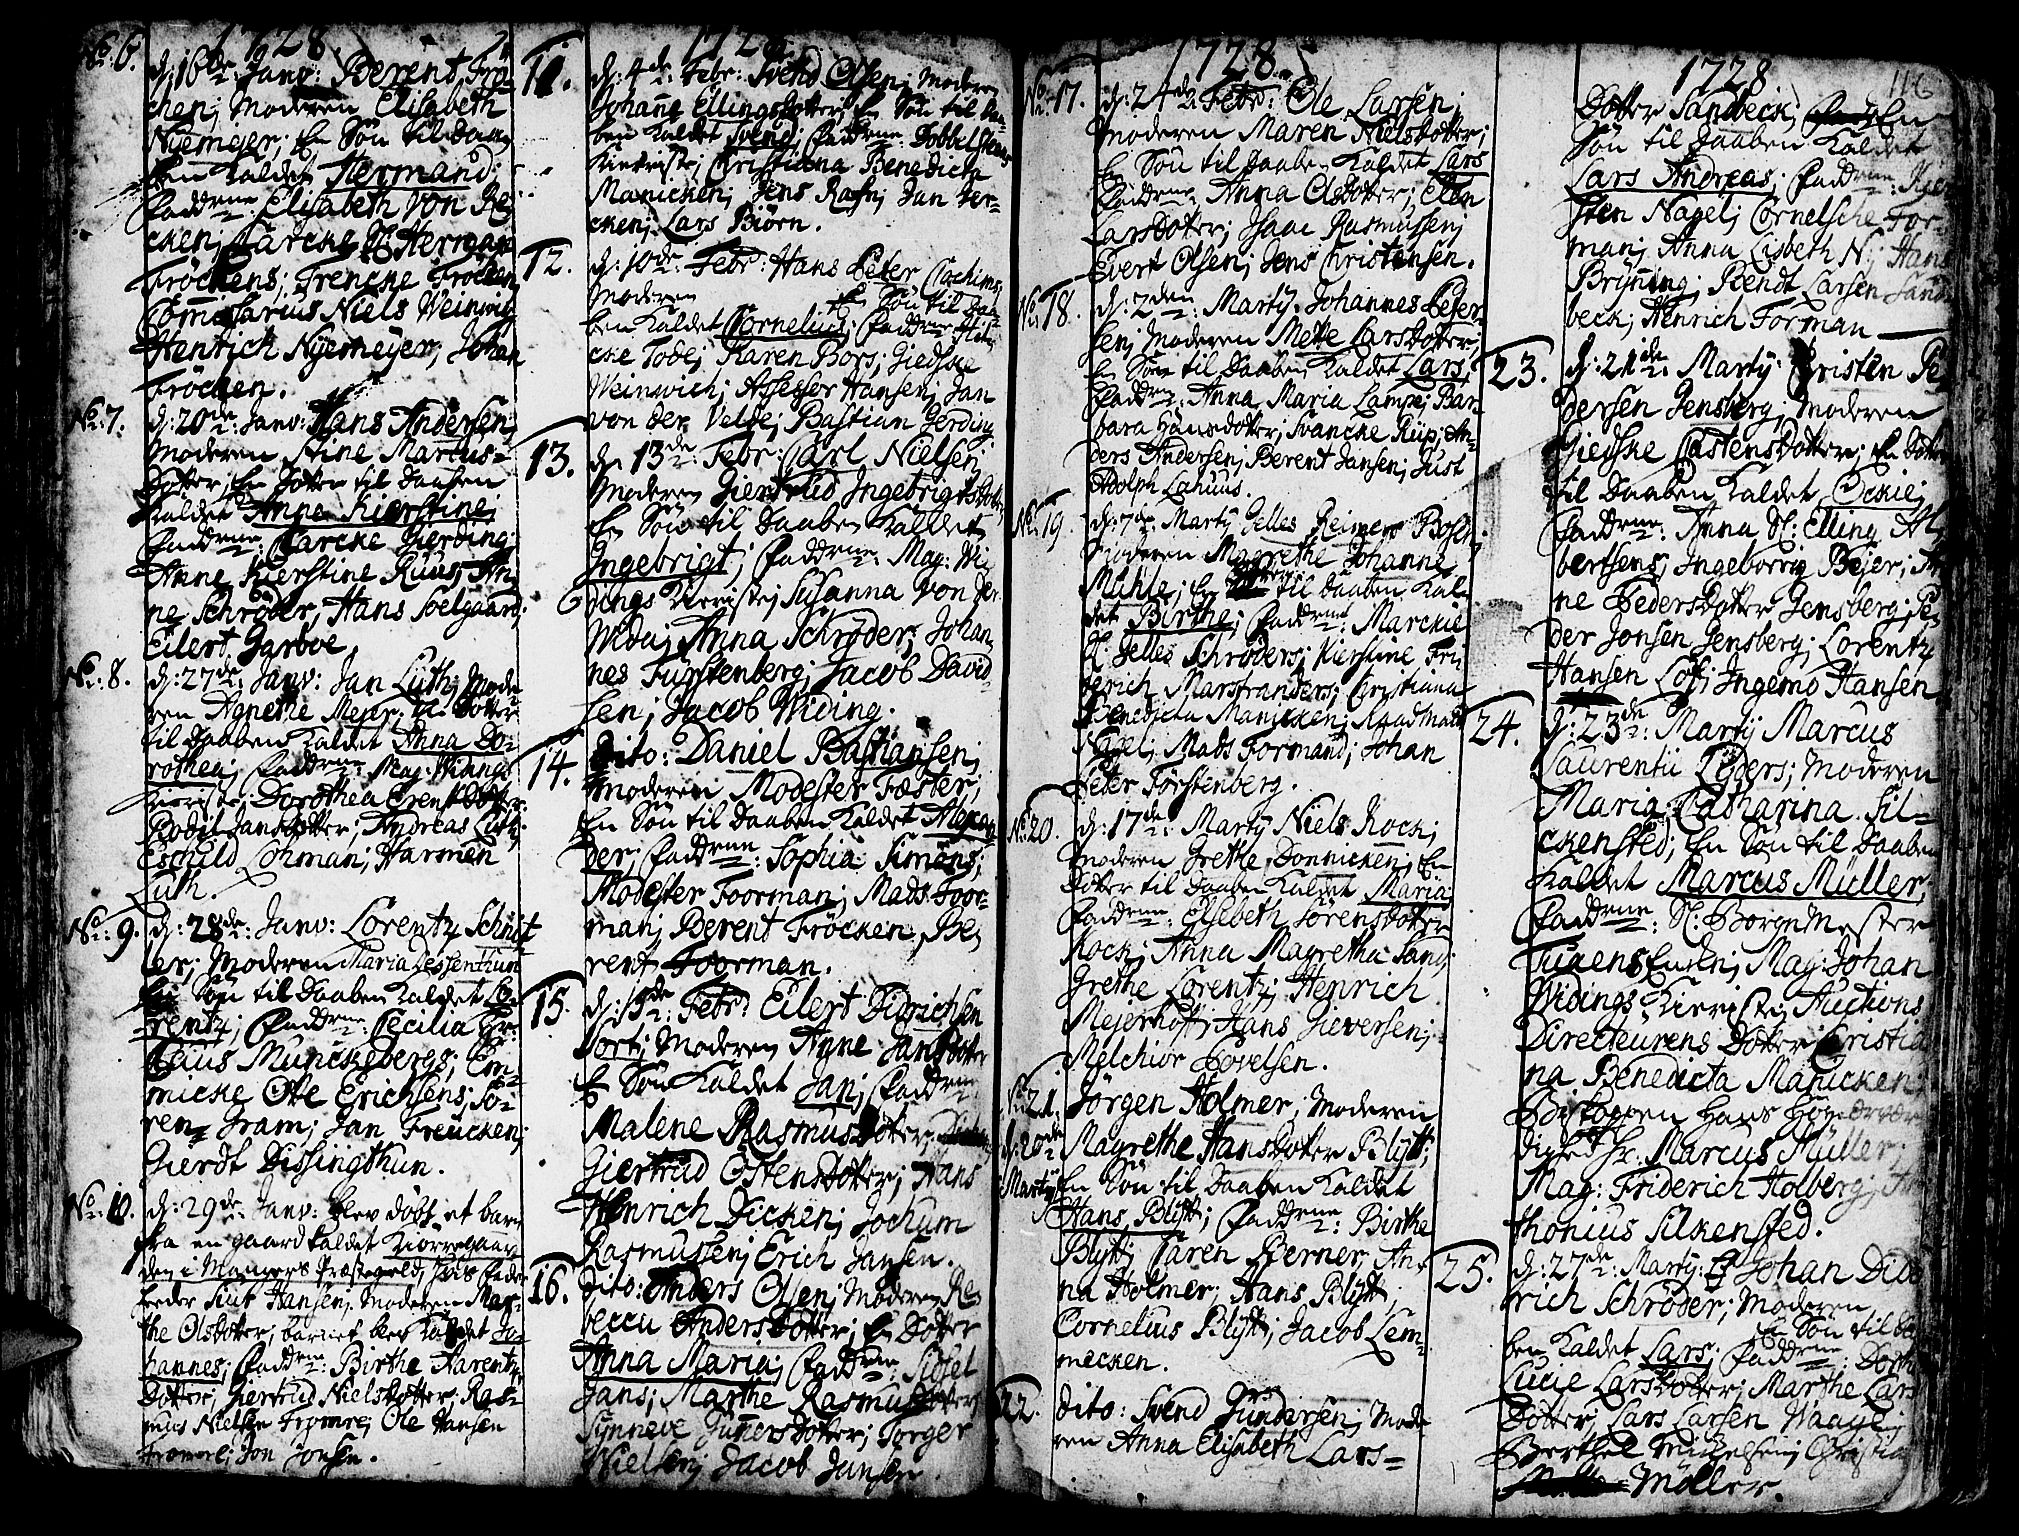 1728
No. 6. d: 16de Janv: Berent Frö-
chen; Moderen Elisabeth
Nyemejer; En Sön til Daa-
ben Kaldet Hermand;
Faddrene: Elisabeth von Re-
cken; Carcke Sl: Herman
Fröckens; Trencke Fröcken
Com̄issarius Niels Weinwig
Henrich Nyemeyer; Johan
Fröcken.
No. 7. d: 20de Janv: Hans Andersen;
Moderen Stine Marcus-
Dotter; En Dotter til Daaben
Kaldet Anne Kierstine;
Faddrene: Carcke Gierding;
Anne Kierstine Ruus; An-
ne Schröder; Hans Soelgaard;
Eilert Garboe.
No. 8. d: 27de Janv: Jan Lüth; Mode-
ren Agnethe Mejer; En Dotter
til Daaben Kaldet Anna Do-
rothea; Faddrene: Mag: Widings
Kieriste; Dorothea ErenstDotter
Bodil JansDotter; Andreas Lüth;
Eschild Lohman; Harmen
Lüth.
No. 9. d: 28de Janv: Lorentz Schnit-
ler; Moderen Maria Dessenthun
En Sön til Daaben Kaldet Lo-
rentz; Faddrene: Cecilia Gre-
Münckebergs; Em-
micke Ole Erichsens; Sö-
ren Fram; Jan Freücken;
Gierdt Dissingthun.
No. 10. d: 29de Janv: blev döbt et barn
fra en gaard kaldet Kiörregaar-
den i Mangers Præstegield, hvis Fader
heeder Siut Hansen; Moderen Mar-
the OlsDotter; barnet blev kaldet Jo-
hannes; Faddrene: Birthe Aarentz
Dotter; Giertrud NielsDotter; Ras-
mus Nielsen Fromre; Ole Hansen
Fromre; Jon Jonsen.
1728
11. d: 4de Febr: Svend Olsen; Moderen
Johan̄e EllingsDotter; En Sön til Daa-
ben Kaldet Svend; Faddrene: Dobbelsteens
Kieriste; Christiana Benedicta
Manicken; Jens Rafn; Jan Ger-
cken; Lars Biörn.
12. d: 10de Febr: Hans Peter Jochims;
Moderen En Sön til Daa-
ben Kaldet Cornelius; Faddrene:
cke Tode; Karen Bors; Giedske
Weinwich; Assessor Hansen; Jan
von der Velde; Bastian Gerding
13. d. 13de Febr: Carl Nielsen;
Moderen Giertrud IngebrigtsDotter
En Sön til Daaben Kaldet
Ingebrigt; Faddrene: Mag: Wi-
dings Kieriste; Susanna von der
Wida; Anna Schröder; Johan-
nes Fürstenberg; Jacob David-
sen; Jacob Widing.
14. Dito: Daniel Bastiansen;
Moderen Modester Fæster;
En Sön til Daaben Kaldet Alexan-
der; Faddrene: Sophia Simens;
Modester Foorman; Mads Foor-
man; Berent Fröcken; Be-
rent Foorman.
15. d: 15de Febr: Eilert Didrichsen
Sort; Moderen Anne JansDotter
En Sön Kaldet Jan; Faddrene
Malene RasmusDotter;
Giertrud OstensDotter; Hans
Henrich Dicken; Jochum
Rasmussen; Erich Jansen.
16. Dito: Anders Olsen; Moderen Re-
becca AndersDotter; En Dotter
Anna Maria; Faddrene: Sidsel
Jans; Marthe RasmusDotter
Sünneve Gün̄ersDotter; Torger
Nielsen; Jacob Jansen.
1728
No. 17. d: 24de Febr: Ole Larsen;
Moderen Maren NielsDotter;
En Sön til Daaben Kaldet Lars
Faddrene: Anna OlsDotter; Ellen
LarsDotter; Isaac Rasmussen;
Evert Olsen; Jens Christensen.
No. 18. d: 2den Martÿ. Johannes Peter-
sen; Moderen Mette LarsDotter
En Sön til Daaben Kaldet Lars
Faddrene: Anna Maria Lampe; Bar-
bara HansDotter; Svancke Rüp; An-
ders Andersen; Berent Jansen; Just
Adolph Lahuus.
No. 19. d: 7de Martÿ Jelles Reimers Bosen;
Moderen Magrethe Johanne
Mühle; En Dotter til Daaben Kal-
det Birthe; Faddrene: Marckie
Sl: Jelles Schröders; Kierstine Fri-
derich Marstranders; Christiana
Benedicta Manicken; Raadmand
Nagel; Mads Formand; Johan
Peter Förstenberg.
No. 20. d: 17de Martÿ Niels Kock;
Moderen Grethe Donnicken; En
Dotter til Daaben Kaldet Maria
Faddrene: Elsebeth SörensDotter
Kock; Anna Magretha Sand;
Grethe Lorentz; Henrich
Mejerhoff; Hans Gieversen;
Melchior Povelsen.
No. 21. Jörgen Holmer; Moderen
d. 20de Magrethe HansDotter Blÿtt;
Martÿ En Sön til Daaben Kaldet
Hans Blÿtt; Faddrene: Birthe
Blÿtt; Karen Berner; An-
na Holmer; Hans Blÿtt;
Cornelius Blÿtt; Jacob Lem-
mecken.
22. Dito: Svend Gundersen; Mode-
ren Anna Elisabeth Lars-
1728 116
Dotter Sandbeck; En
Sön til Daaben Kaldet
Lars Andreas; Faddrene: Kier-
sten Nagel; Cornelsche For-
man; Anna Lisbeth N.; Hans
Brÿnning; Bendt Larsen Sand-
beck; Henrich Forman
23. d: 21de Martÿ Christen Pe-
dersen Jensberg; Moderen
Giedske CastensDotter; En Dotter
til Daaben Kaldet Ockie;
Faddrene: Anna Sl: Elling Al-
bertsens; Ingeborrig Bejer; An-
ne PedersDotter Jensberg; Pe-
der Jonsen Jensberg; Lorentz
Hansen Löf; Ingemo Hansen
24. d: 23de Martÿ Marcus
Laurentii Lyders; Moderen
Maria Catharina Sil-
ckensted; En Sön til Daaben
Kaldet Marcus Müller;
Faddrene: Sl: BorgeMester
Tuxens Encken; Mag: Johan
Widings Kieriste; Auctions
Directeurens Dotter Cristia-
na Benedicta Manicken;
Biskoppen Hans Höyærvær-
dighed Hr. Marcus Müller;
Mag: Friderich Holberg; An-
thonius Silkensted.
25. d: 27de Martÿ: Johan Did-
rich Schröder; Moderen
En Sön til Daa-
ben Kaldet Lars; Faddrene: Dorthe
Lucie LarsDotter; Marthe Lars
Dotter; Lars Larsen Waage;
Berthel Michelsen; Christian
Möller.